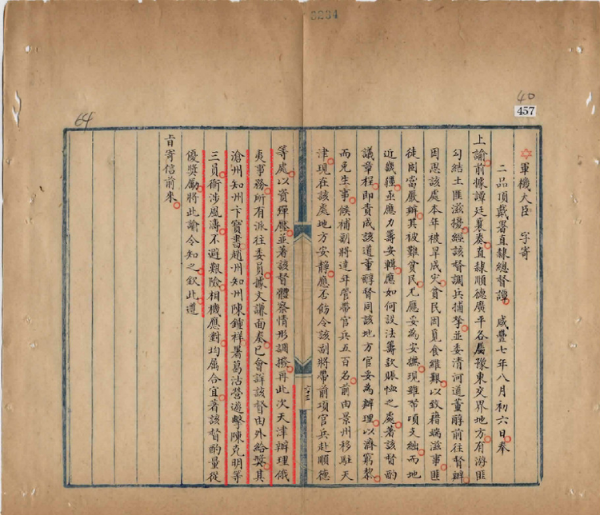 40
457
64
軍機大臣 字寄
二品頂戴署直隸總督譚 咸豐七年八月初六日奉
上諭前據譚廷襄奏直隸順德廣平各屬豫東交界地方有游匪
勾結土匪滋擾經該督調兵捕拏並委清河道董醇前往督辦
因思該處本年被旱成災貧民困覓食維艱以致藉端滋事匪
徒固當嚴辦其被難貧民尤應妥為安撫現雖帑項支絀而地
近畿輔亟應力籌安輯應如何設法籌款賑恤之處著該督酌
議章程即責成該道董醇督同該地方官妥為辦理以濟窮黎
而免生事候補副將達年管帶官兵五百名前由景州移駐天
津現在該處地方安靜應否飭令該副將帶前項官兵赴順德
等處以資彈壓並著該督體察情形調撥再此次天津辦理俄
夷事務所有派往委員據文謙面奏已會詳該督由外給獎其
滄州知州卞寶書趙州知州陳鍾祥署葛沽營遊擊陳克明等
三員衝涉風濤不避艱險相機應對均屬合宜著該督酌量從
優獎勵將此諭令知之欽此遵
旨寄信前來